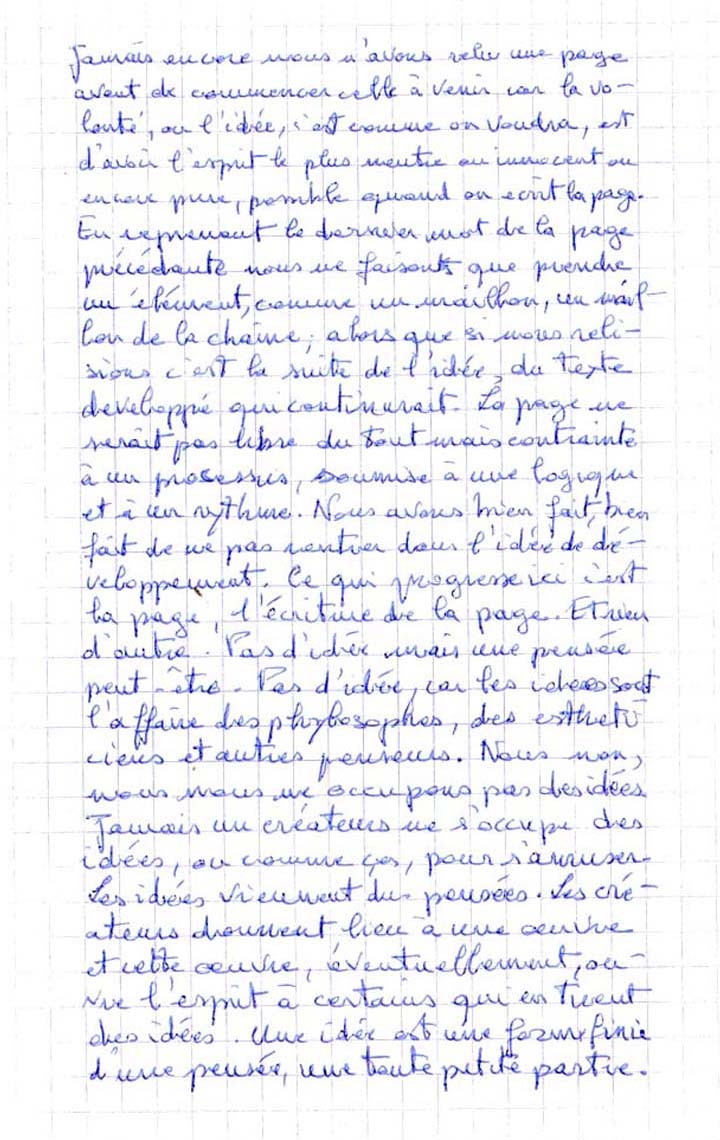 Jamais encore nous n'avons relu une page
avant de commencer celle à venir car la vo-
lonté, ou l'idée, c'est comme on voudra, est
d'avoir l'esprit le plus neutre ou innocent ou
encore pure, possible quand on ecrit la page.
En reprenant le dernier mot de la page
précédante nous ne faisonts que prendre
un élément, comme un maillhon, un mail-
lon de la chaîne, alors que si nous reli-
sions c'est la suite de l'idée, du texte
developpé qui continurait. La page ne
serait pas libre du tout mais contrainte
à un processus, soumise à une logique
et à un rythme. Nous avons bien fait, bien
fait de ne pas rentrer dans l'idée de dé-
veloppement. Ce qui progresse ici c'est
la page, l'écriture de la page. Et rien
d'autre. Pas d'idée mais une pensée
peut-être. Pas d'idée, car les idees sont
l'affaire des phylosophes, des estheti-
ciens et autres penseurs. Nous non,
nous nous ne occupons pas des idées
Jamais un créateurs ne s'occupe des
idées, ou comme ça, pour s'amuser.
Les idées viennent des pensées. Les cré-
ateurs donnent lieu à une oeuvre
et cette oeuvre, éventuellement, ou-
vre l'esprit à certains qui en tirent
des idées. Une idée est une forme finie
d'une pensée, une toute petite partie.